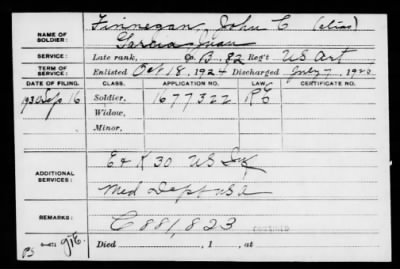 NAME OF SOLDIER: Finnegan, John C (alias)
Garcia, Juan
SERVICE: Late rank, Co. B - 82 Reg't US Art
TERM OF SERVICE: Enlisted Oct 18, 1924 Discharged July 7, 192
DATE OF FILING. CLASS. APPLICATION NO. LAW. CERTIFICATE NO.
1930 Sep 16 Soldier, 1677322
Widow,
Minor,
ADDITIONAL SERVICES: E & K 30 US Inf
Med Dept USA
REMARKS: C 881,823
Died , 1 , at